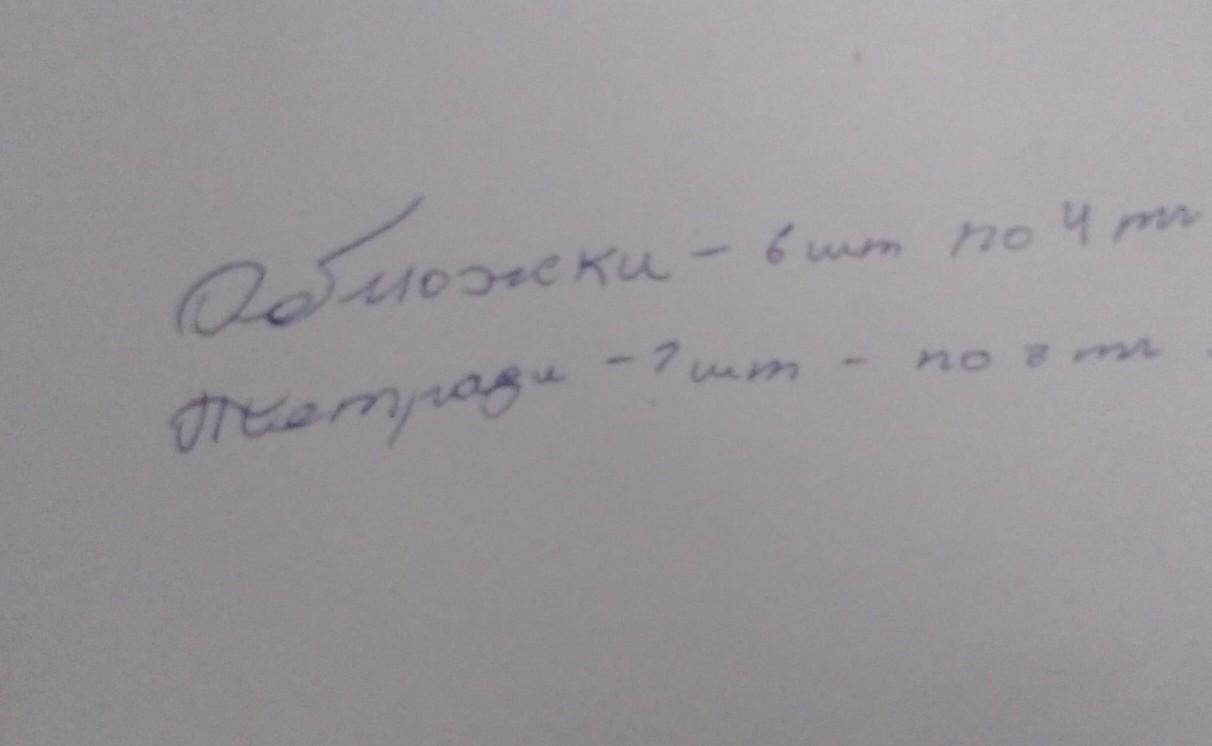 Обложки - 6 шт по 4 тг
Тетради - 7 шт - по 8 тг.